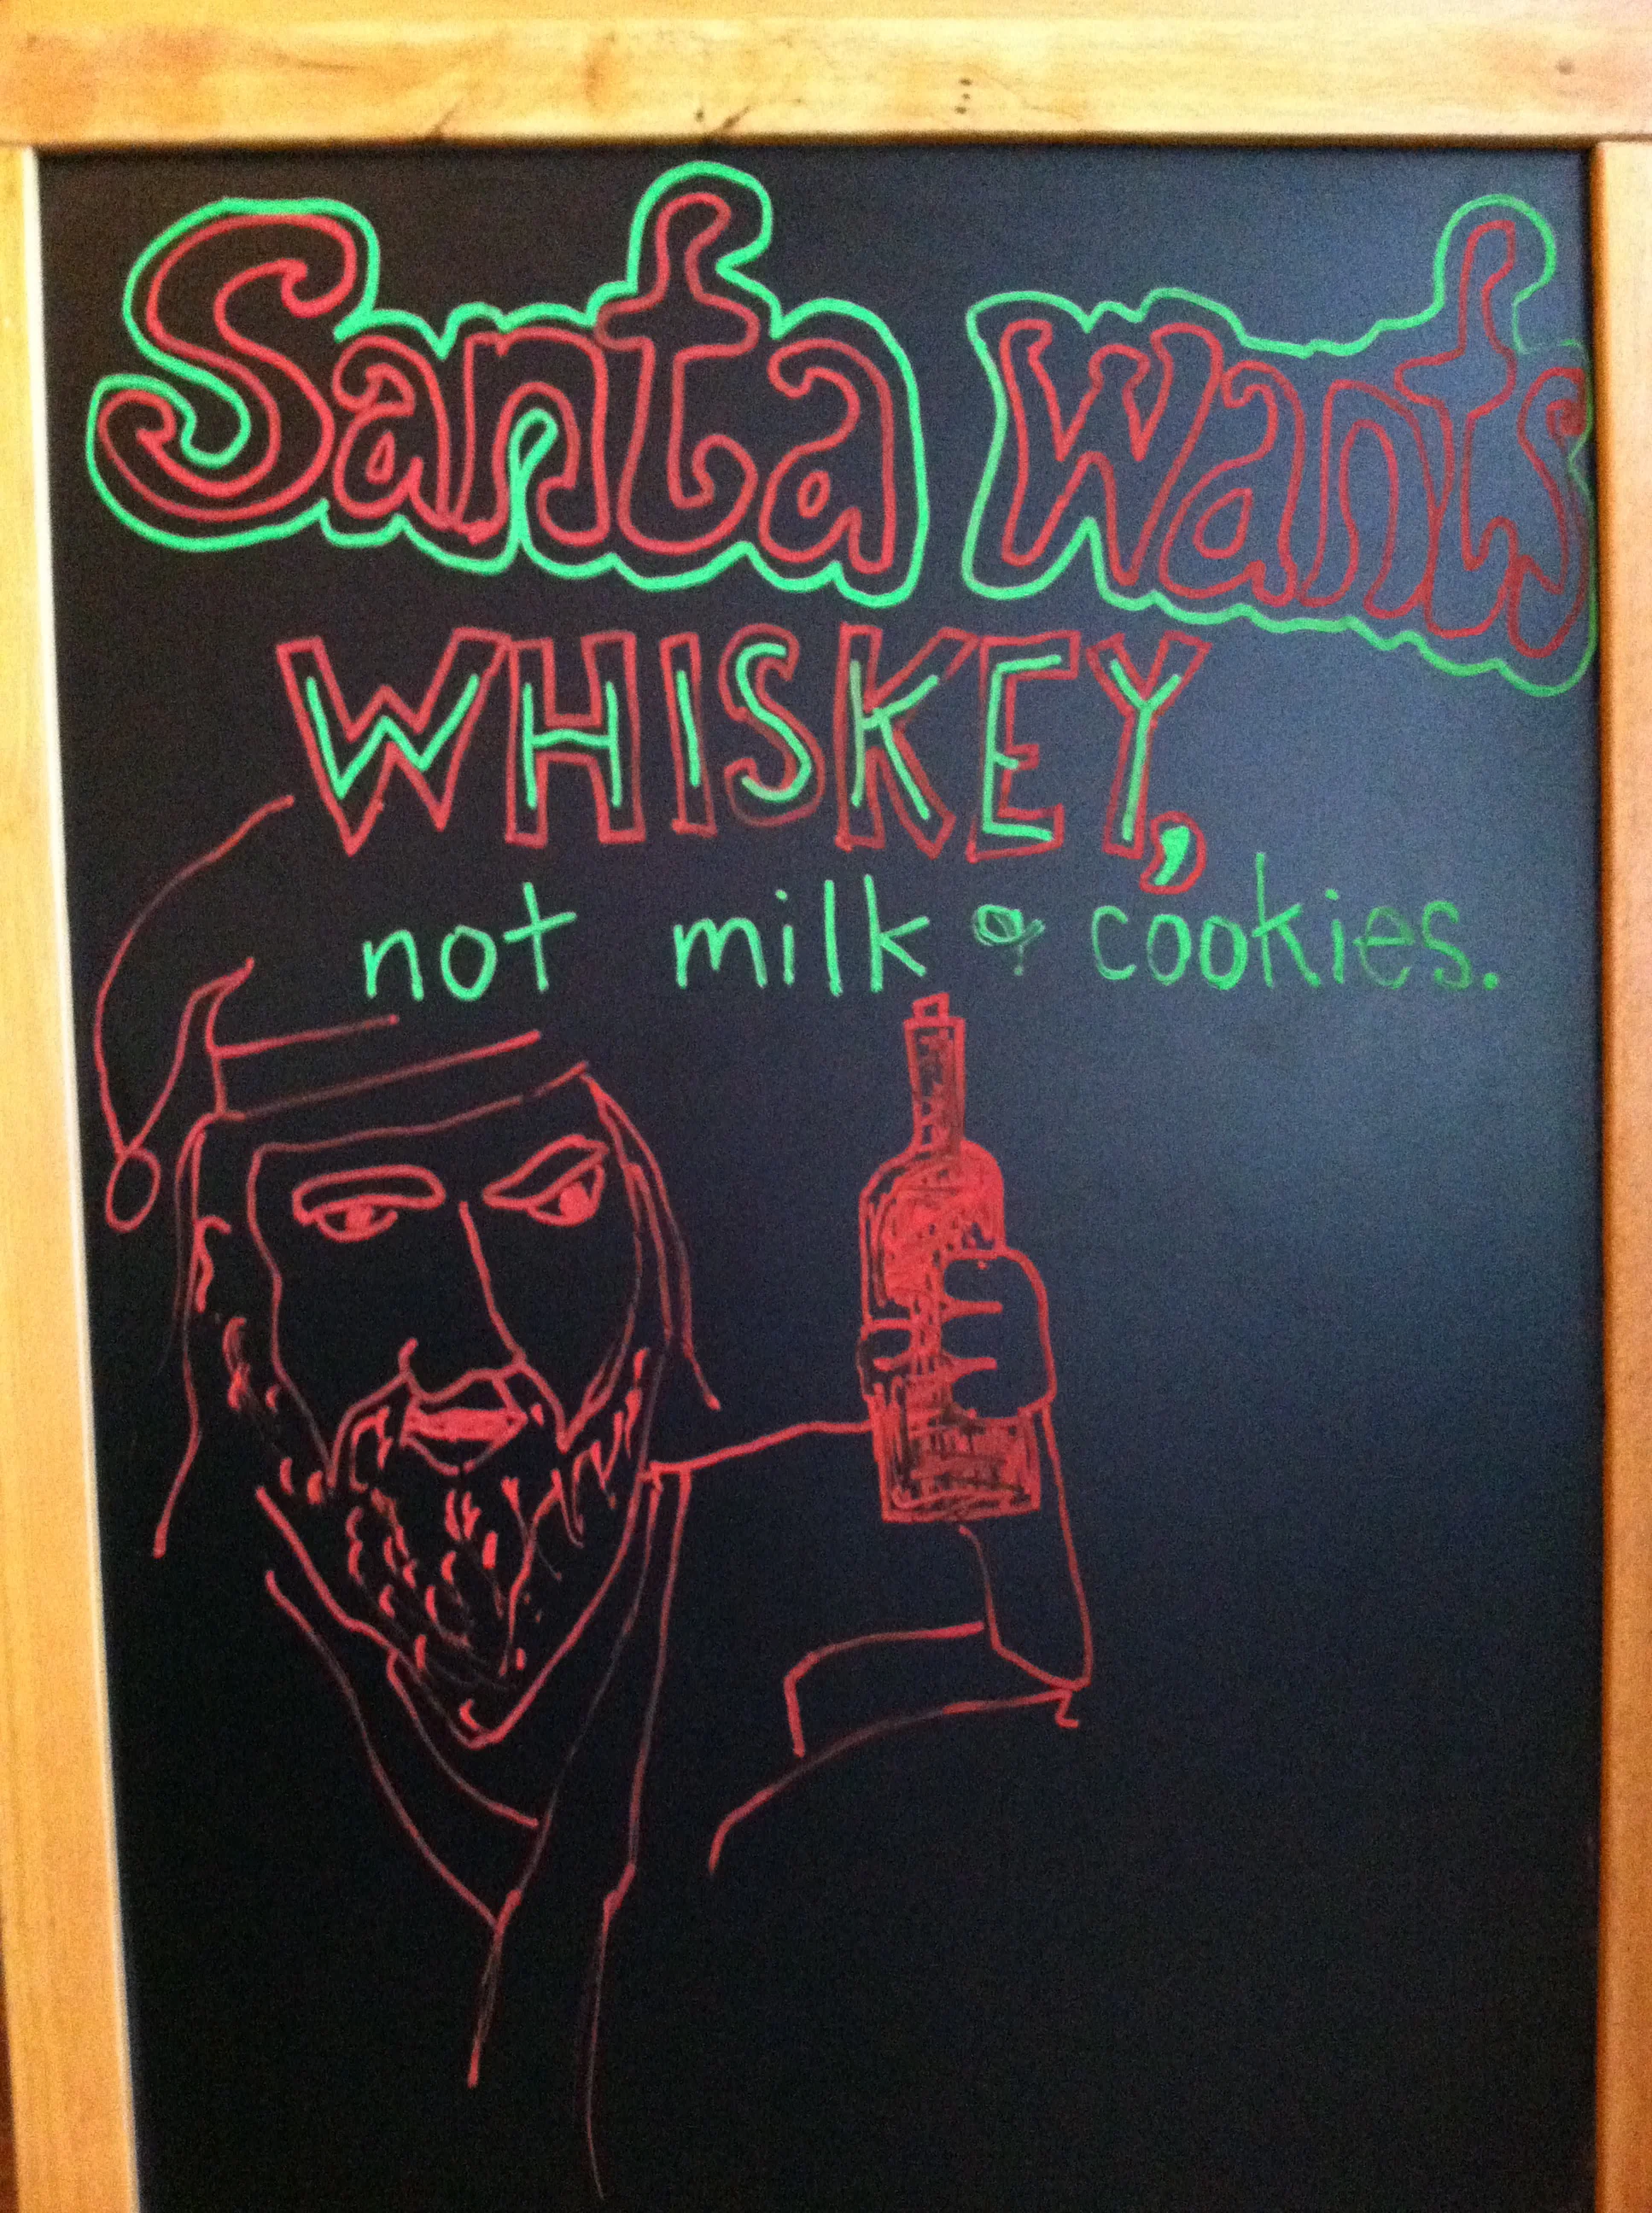 Santa wants
WHISKEY,
not milk & cookies.